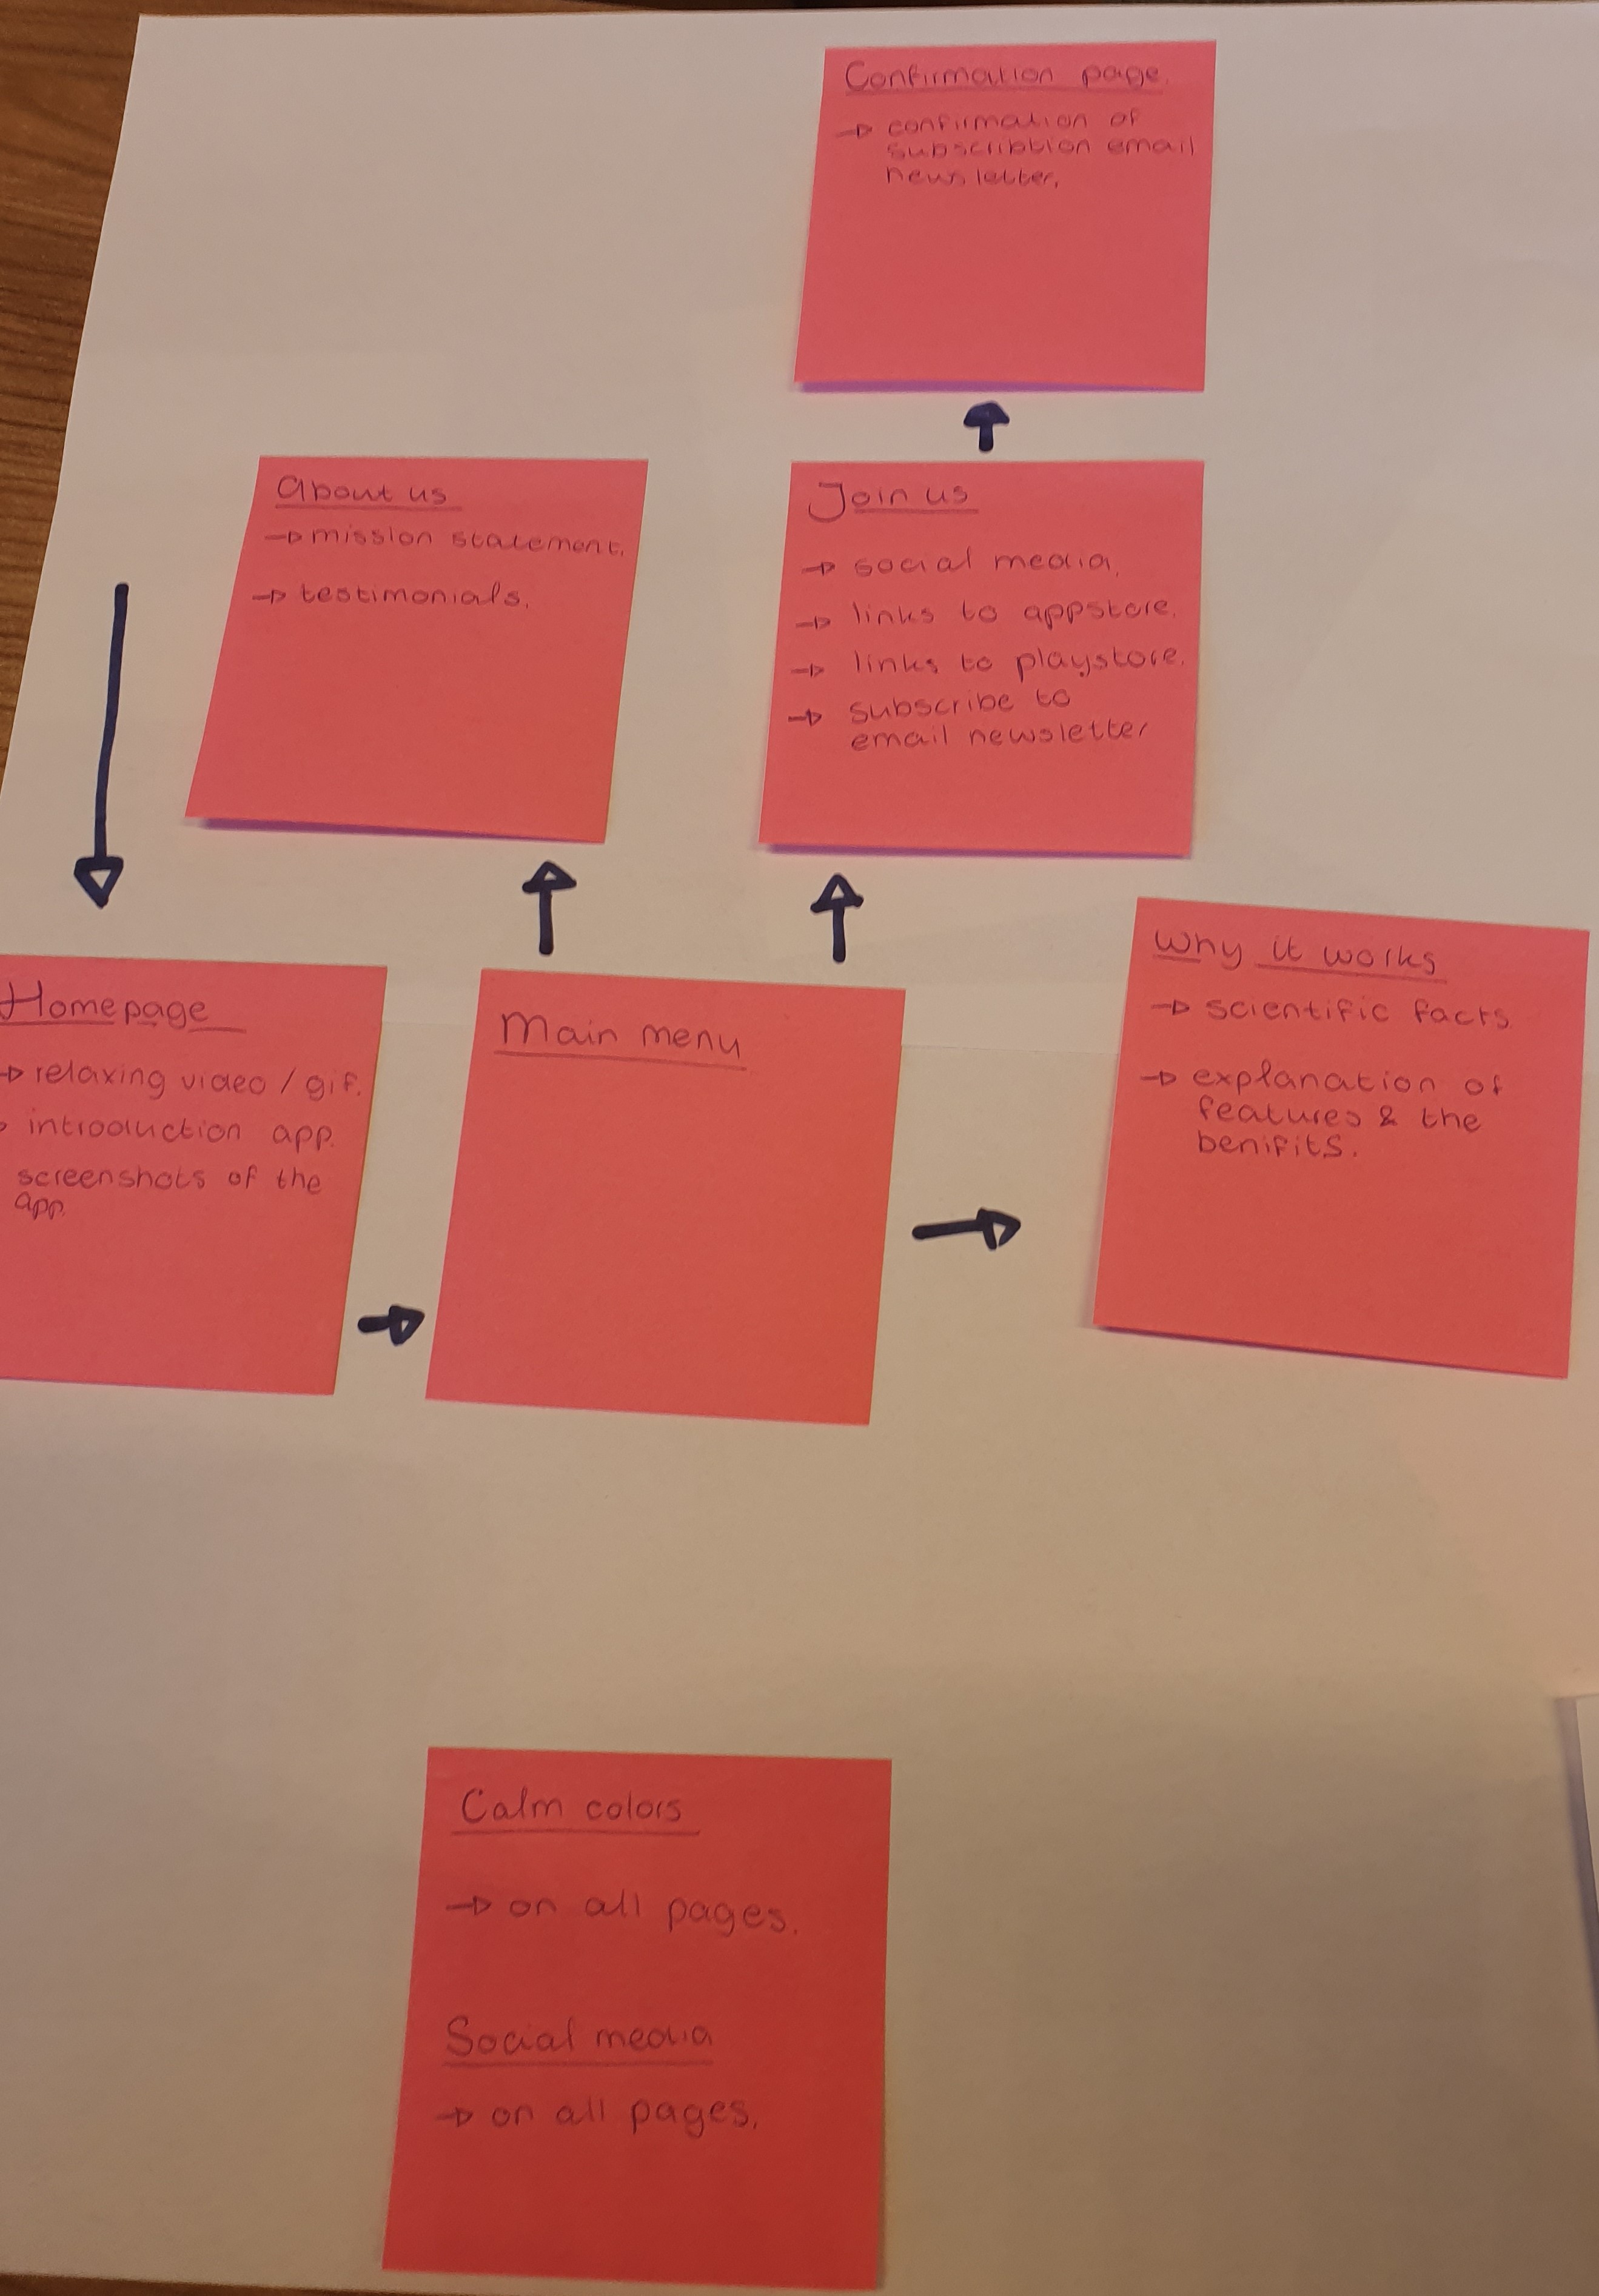 Confirmation page.
→ confirmation of
subscribtion email
newsletter.
About us
→ mission statement.
→ testimonials.
Join us
→ social media.
→ links to appstore.
→ links to playstore.
→ subscribe to
email newsletter
Homepage
→ relaxing video / gif.
introduction app.
screenshots of the
app.
Main menu
Why it works
→ scientific facts
→ explanation of
features & the
benifits.
Calm colors
→ on all pages.
Social media
→ on all pages.